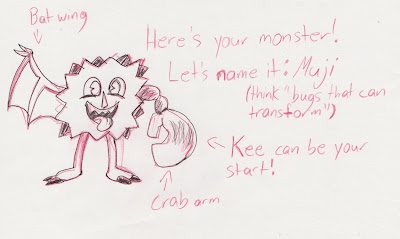 Bat wing
Here's your monster!
Let's name it: Muji
(think "bugs that can
transform")
Kee can be your
start!
Crab arm